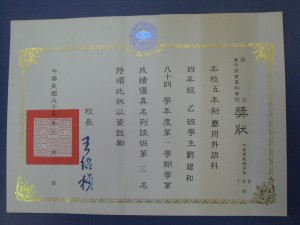 獎狀
本校五年制應用外語科
四年級 乙 班學生劉建和
八十四 學年度第一學期學業
成績優異名列該班第 三 名
特頒此狀以資鼓勵
校長
中華民國八十五年